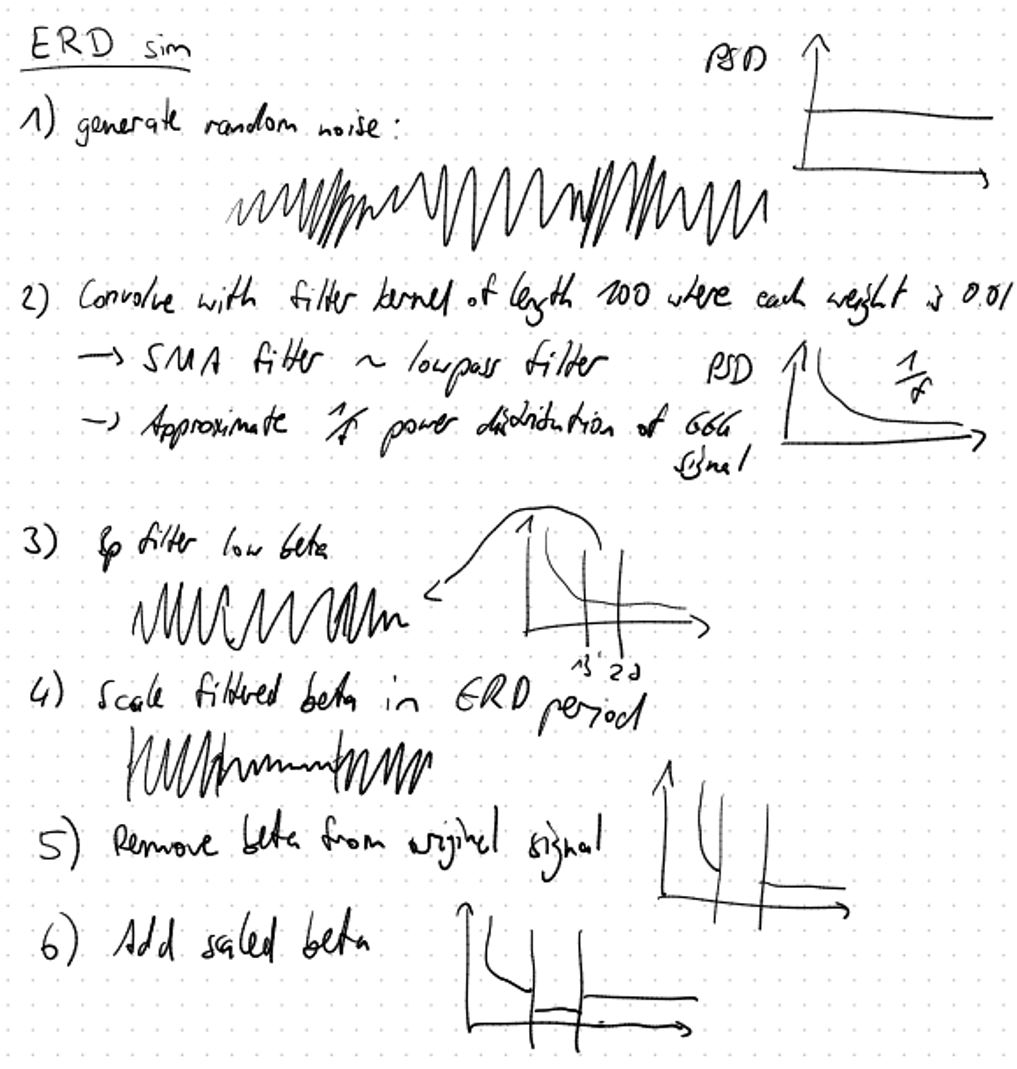 ERD sim
PSD
1) generate random noise:
2) Convolve with filter kernel of length 100 where each weight is 0.01
→ SMA filter ~ lowpass filter
PSD
1/f
→ Approximate 1/f power distribution of EEG
signal
3) Bp filter low beta
13 20
4) Scale filtered beta in ERD period
5) Remove beta from original signal
6) Add scaled beta